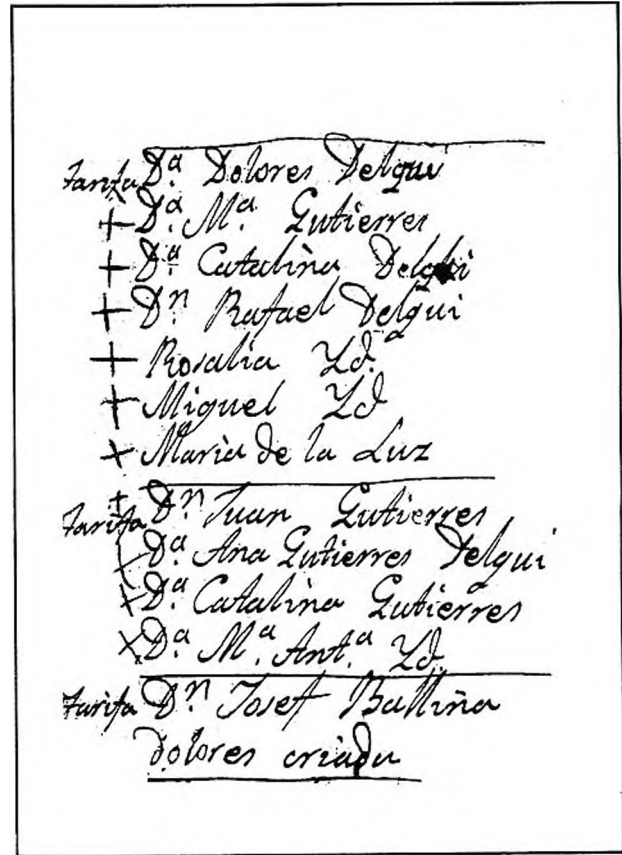 tarifa D.ª Dolores Delqui
+ D.ª M.ª Gutierres
+ D.ª Catalina Delqui
+ D.n Rafael Delqui
+ Rosalia Yd.
+ Miguel Yd
+ Maria de la Luz
+
tarifa D.n Juan Gutierres
D.ª Ana Gutierres Delqui
+ D.ª Catalina Gutierres
+ D.ª M.ª Ant.ª Yd.
tarifa D.n Josef Balliña
dolores criada